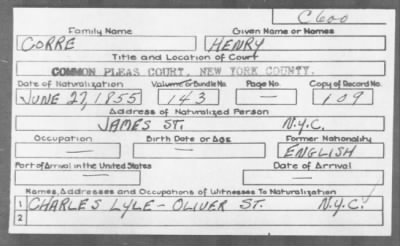 C600
Family Name Given Name or Names
CORRE HENRY
Title and Location of Court
COMMON PLEAS COURT, NEW YORK COUNTY.
Date of Naturalization Volume or Bundle No. Page No. Copy of Record No.
JUNE 27, 1855 143 — 109
Address of Naturalized Person
JAMES ST. N.Y.C.
Occupation Birth Date or Age Former Nationality
— — ENGLISH
Port of Arrival in the United States Date of Arrival
— —
Names, Addresses and Occupations of Witnesses To Naturalization
1 CHARLES LYLE - OLIVER ST. N.Y.C.
2